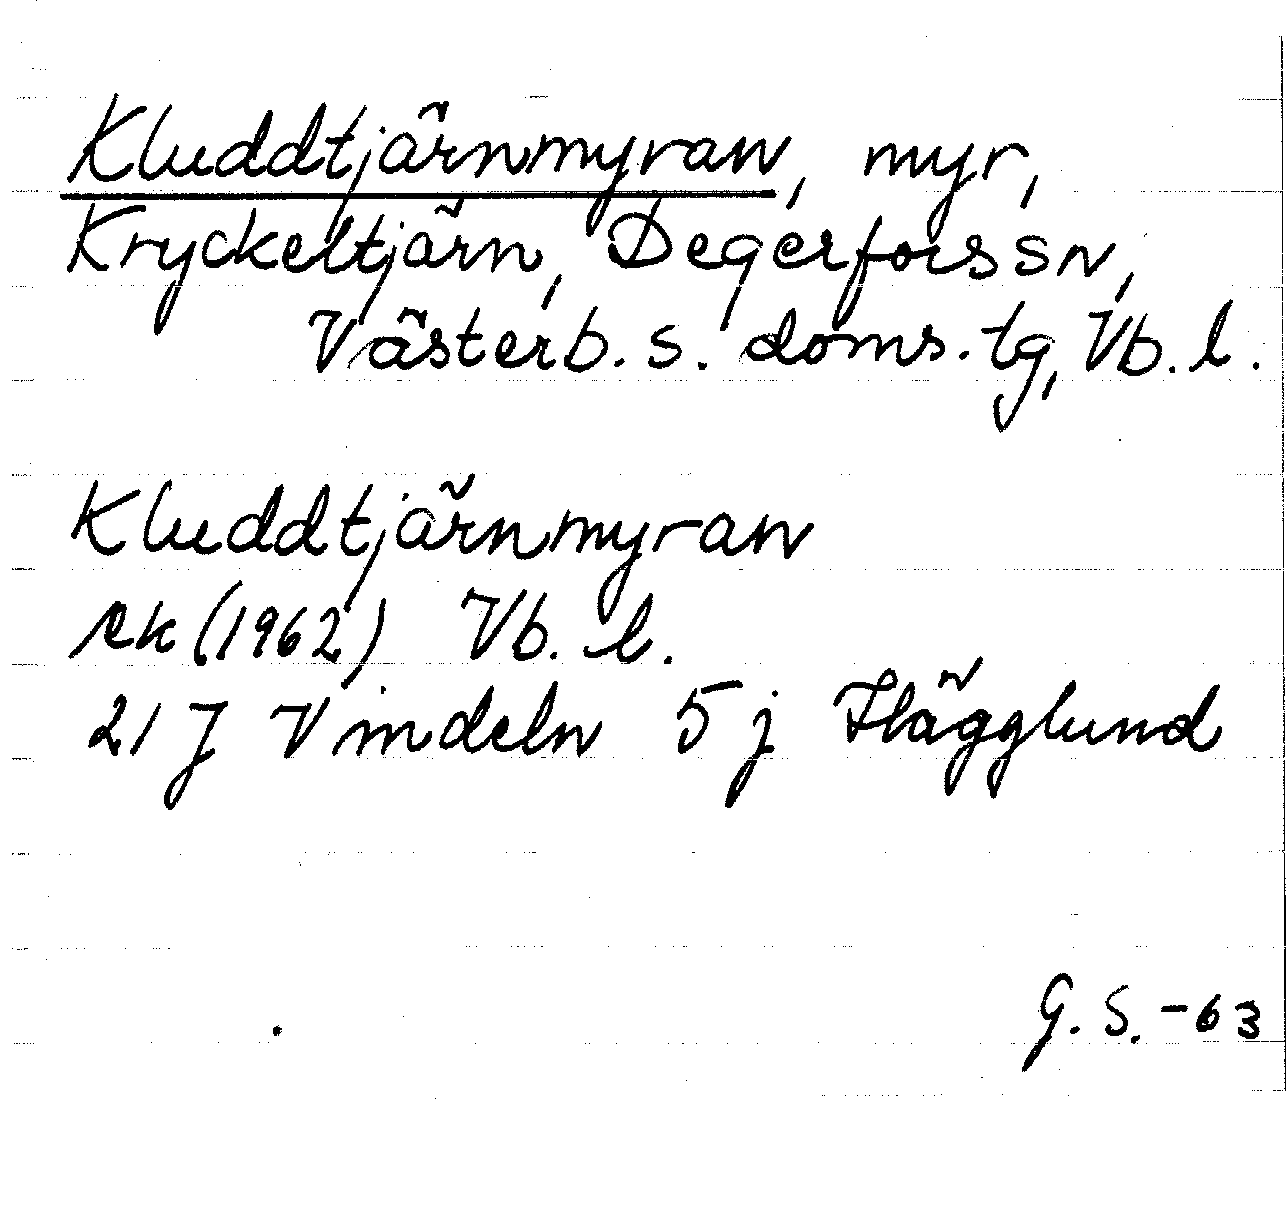 Kluddtjärnmyran, myr,
Kryckeltjärn, Degerfors sn,
Västerb. s. doms. tg, Vb. l.
Kluddtjärnmyran
ek (1962) Vb. l.
21 J Vindeln 5 j Hägglund
G. S. -63